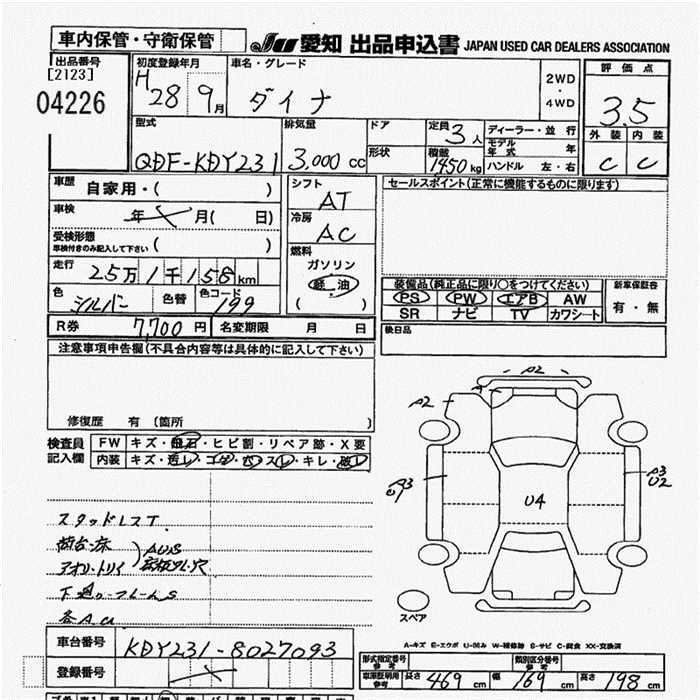 車内保管・守衛保管
JU 愛知 出品申込書 JAPAN USED CAR DEALERS ASSOCIATION
出品番号 初度登録年月 車名・グレード 評価点
[2123]
04226 H 28 9月 ダイナ 2WD・4WD 3.5
型式 排気量 ドア 定員 3人 ディーラー・並行 外装 内装
形状 モデル年式 年
QDF-KDY231 3,000cc 積載 1450kg ハンドル 左・右 C C
車歴 自家用・( ) シフト AT セールスポイント(正常に機能するものに限ります)
車検 年 月( 日) 冷房 AC
受検形態 車検付きのみ記入して下さい ( ) 燃料
走行 25万1千158km ガソリン
軽油 装備品(純正品に限り○をつけてください) 新車保証書
色 シルバー 色替 色コード 199 ( ) PS PW エアB AW 有・無
SR ナビ TV カワシート
R券 7,700円 名変期限 月 日 後日品
注意事項申告欄(不具合内容等は具体的に記入して下さい)
修復歴 有 〔箇所 〕
検査員記入欄 FW キズ・飛石・ヒビ割・リペア跡・X要
内装 キズ・汚レ・コゲ・穴・スレ・キレ・破レ
A2
A
A2
A3
U2
U4
スペア
スタッドレスT.
荷台・床
アオリ・トリイ
AUS
下廻り・フレームS
各AU
A-キズ E-エクボ U-凹み W-補修跡 S-サビ C-腐食 XX-交換済
車台番号 KDY231-8027093
形式指定番号 参考 類別区分番号 参考
登録番号
車庫証明用参考 長さ 469cm 幅 169cm 高さ 198cm